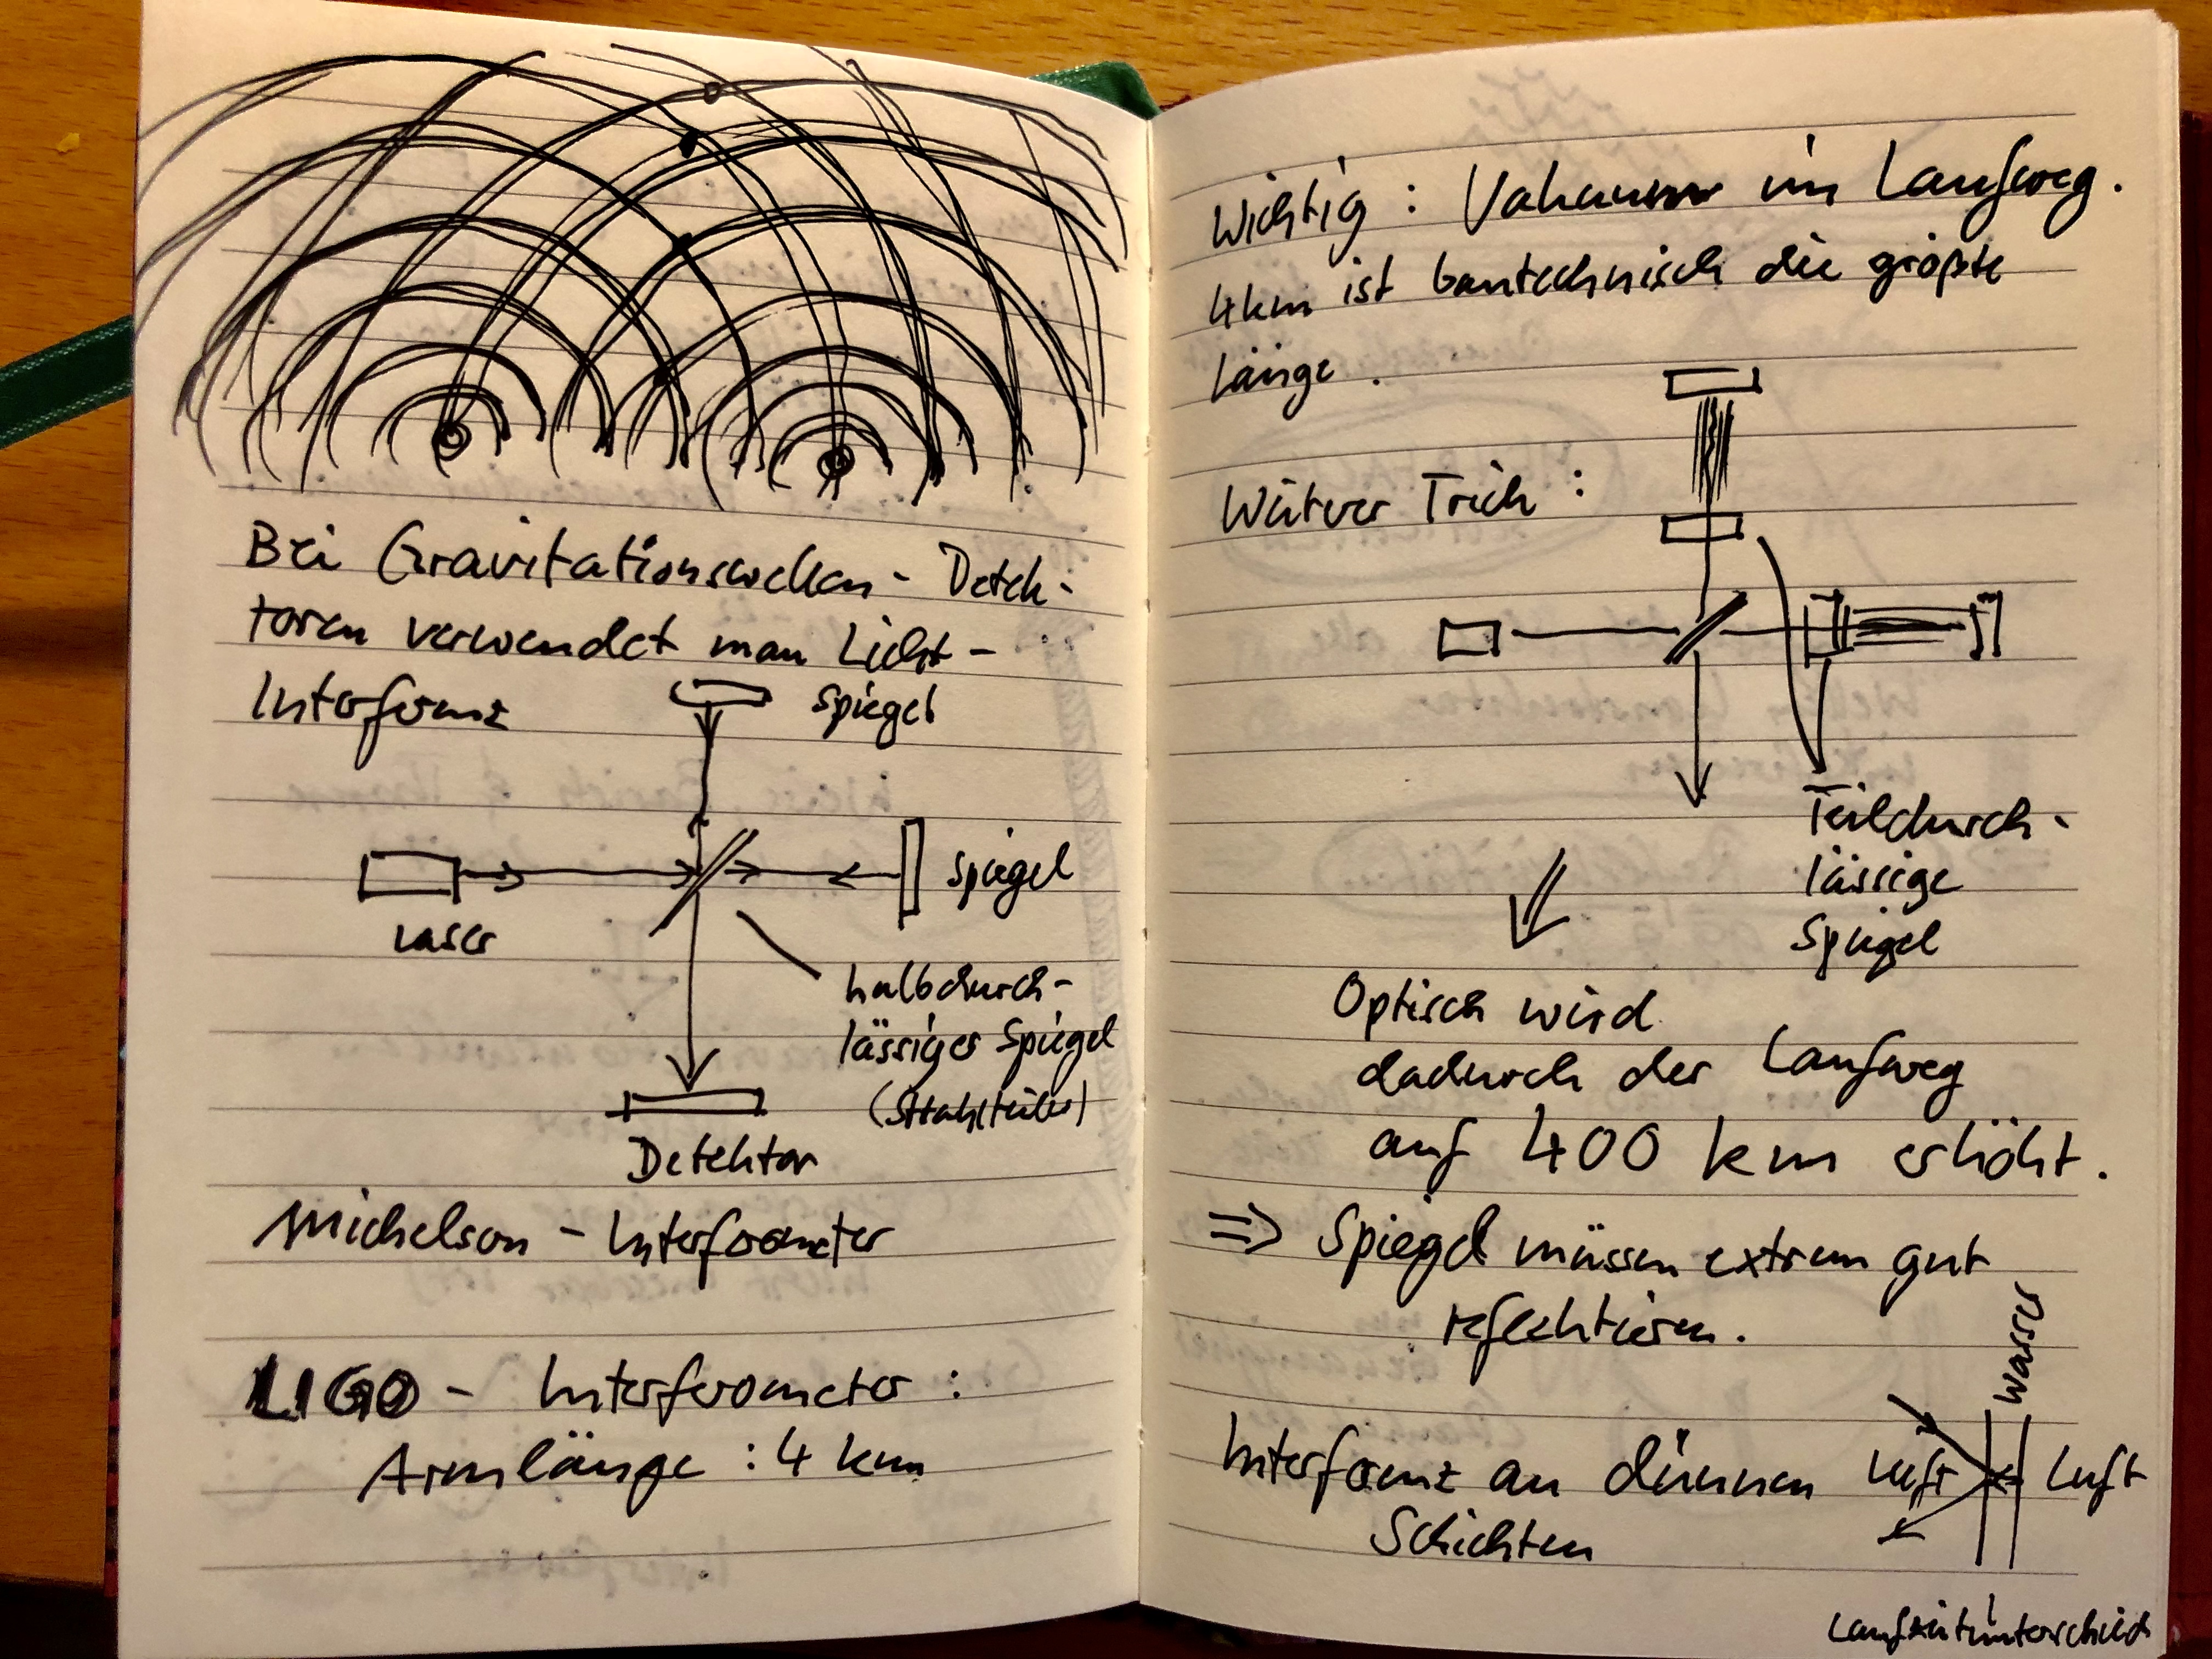 Bei Gravitationswellen - Detek-
toren verwendet man Licht -
Interferenz
Spiegel
Spiegel
Laser
halbdurch-
lässiger Spiegel
(Strahlteiler)
Detektor
Michelson - Interferometer
LIGO - Interferometer :
Armlänge : 4 km
Wichtig : Vakuum im Laufweg.
4km ist bautechnisch die größte
Länge .
Weiterer Trick :
Teildurch-
lässige
Spiegel
Optisch wird
dadurch der Laufweg
auf 400 km erhöht.
=> Spiegel müssen extrem gut
reflektieren.
Wasser
Interferenz an dünnen
Schichten
Luft
Luft
Laufzeitunterschied